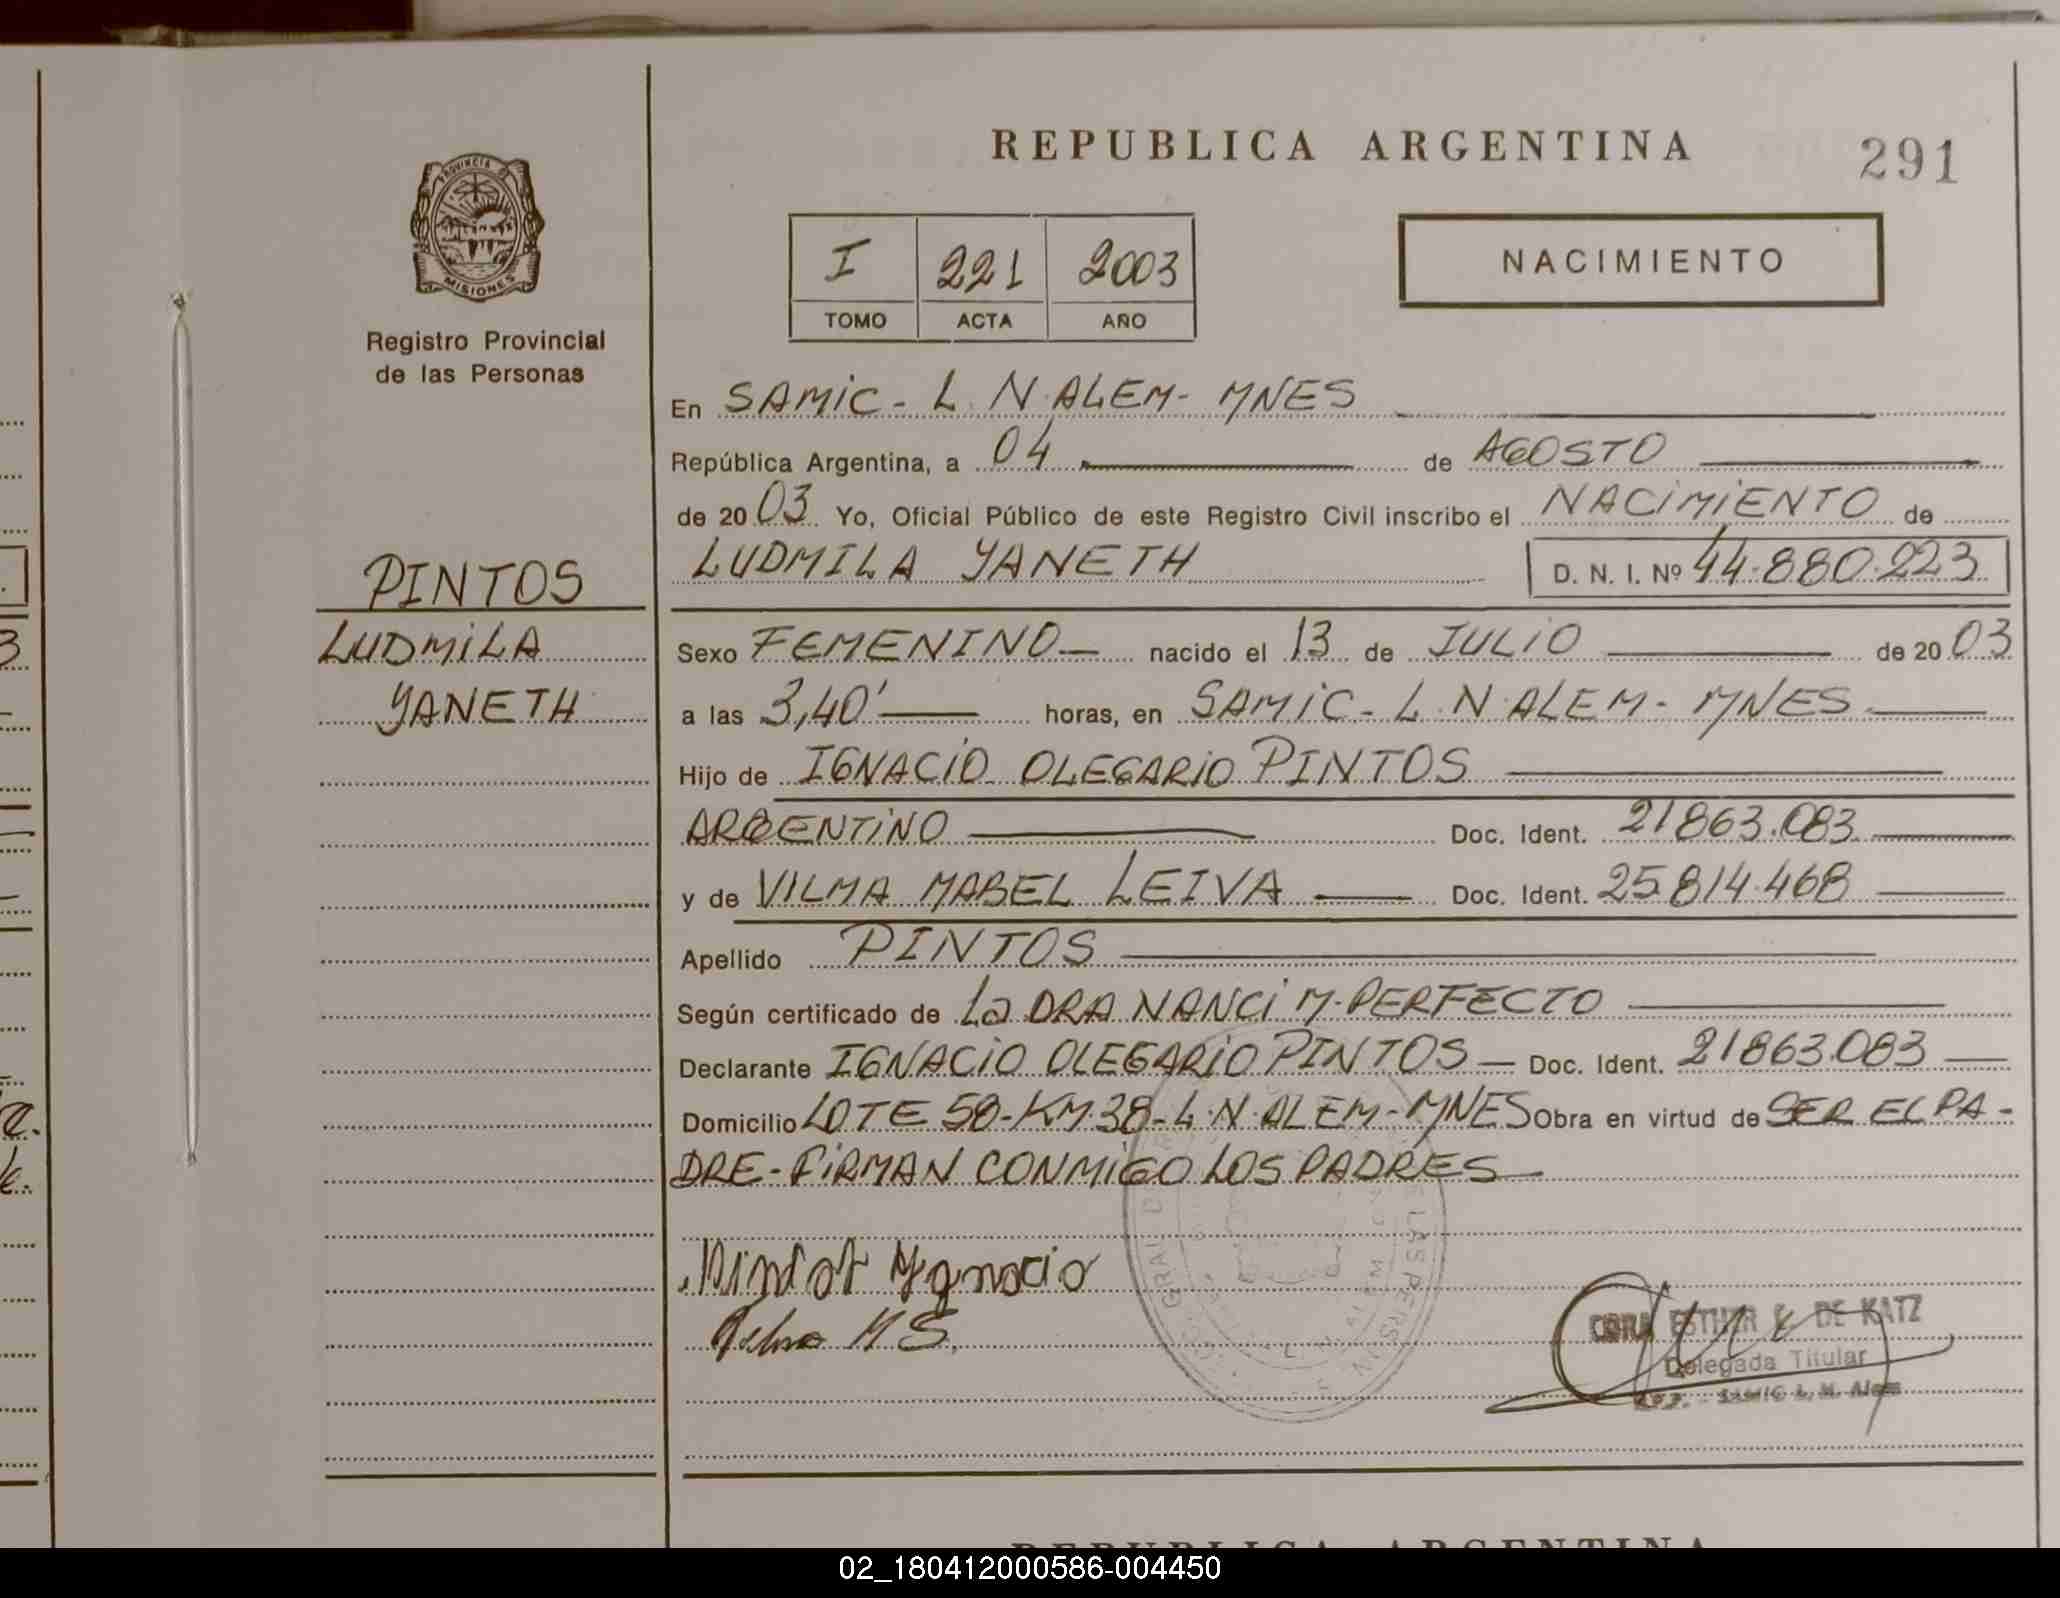 REPUBLICA ARGENTINA
291
PROVINCIA DE
MISIONES
Registro Provincial
de las Personas
I 221 2003
TOMO ACTA AÑO
NACIMIENTO
PINTOS
LUDMILA
YANETH
En SAMIC - L. N. ALEM - MNES
República Argentina, a 04 de AGOSTO
de 2003 Yo, Oficial Público de este Registro Civil inscribo el NACIMIENTO de
LUDMILA YANETH D. N. I. Nº 44.880.223
Sexo FEMENINO nacido el 13 de JULIO de 2003
a las 3,40' horas, en SAMIC - L. N. ALEM - MNES
Hijo de IGNACIO OLEGARIO PINTOS
ARGENTINO Doc. Ident. 21863.083
y de VILMA MABEL LEIVA Doc. Ident. 25.814.468
Apellido PINTOS
Según certificado de La DRA NANCI M. PERFECTO
Declarante IGNACIO OLEGARIO PINTOS Doc. Ident. 21863.083
Domicilio LOTE 58 - KM. 38 - L. N. ALEM - MNES Obra en virtud de SER EL PA-
DRE - FIRMAN CONMIGO LOS PADRES
Pintos Ygnacio
M S.
ESTHER DE KATZ
Delegada Titular
SAMIC L. N. Alem
REPUBLICA ARGENTINA
02_180412000586-004450